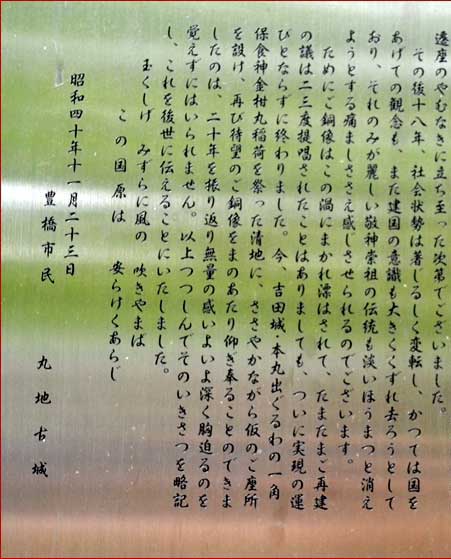 遷座のやむなきに立ち至った次第でございました。
その後十八年、社会状勢は著じるしく変転し、かつては国を
あげての観念も、また建国の意識も大きくくずれ去ろうとして
おり、それのみが麗しい敬神崇祖の伝統も淡いほうまつと消え
ようとする痛ましささえ感じさせられるのでございます。
ためにご銅像はこの渦にまかれ漂はされて、たまたまご再建
の議は二三度提唱されたことはありましても、ついに実現の運
びとならずに終わりました。今、吉田城・本丸出ぐるわの一角
保食神金柑丸稲荷を祭った清地に、ささやかながら仮のご座所
を設け、再び待望のご銅像をまのあたり仰ぎ奉ることのできま
したのは、二十年を振り返り無量の感いよいよ深く胸迫るのを
覚えずにはいられません。以上つつしんでそのいきさつを略記
し、これを後世に伝えることにいたしました。
玉くしげ みずらに風の 吹きやまば
この国原は 安らけくあらじ
昭和四十年十一月二十三日
豊橋市民 丸地古城